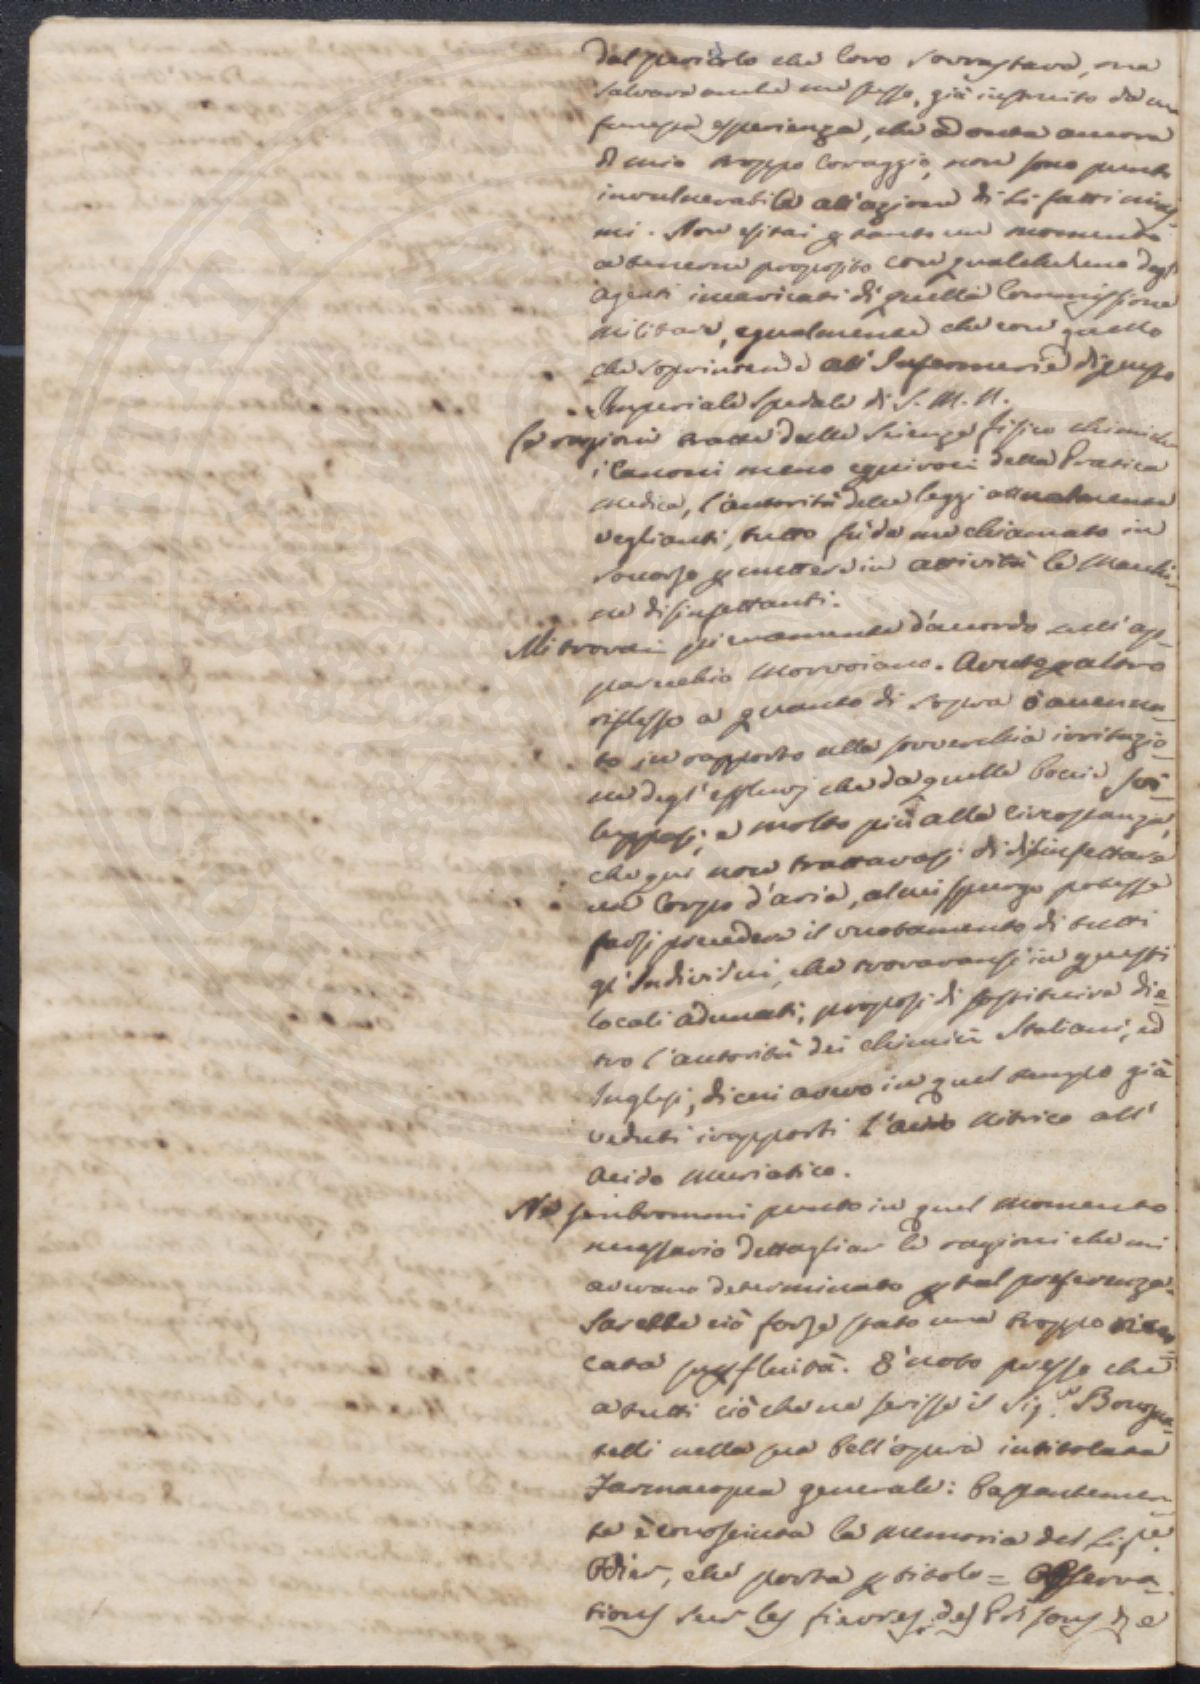 dal pericolo che loro sovrastava, ma
salvava anche me stesso, già instruito da una
funesta esperienza, che ad onta ancora
di mio troppo coraggio, non sono punto
invulnerabile all'azione di sì fatti
mi. Non esitai ꝑ tanto un momento
a tenerne proposito con qualcheduno degl'
Agenti incaricati di quella Commissione
Militare, egualmente che con quello
che soprintende all'Infermerie di questo
Imperiale Spedale di S. M. N.
Le ragioni tratte dalle Scienze fisico chimiche
i Canoni meno equivoci della Pratica
medica, l'autorità delle leggi attualmente
veglianti, tutto fù da me chiamato in
soccorso ꝑ mettere in attività le Macchi-
ne disinfettanti.
Mi trovai pienamente d'accordo sull'ap-
parecchio Morvoiano. Avuto ꝑ altro
riflesso a quanto di sopra ò accenna-
to in rapporto alla soverchia irritazio-
ne degl'effluvj che da quelle bocce svi-
luppasi, e molto più alla circostanza,
che qui non trattavasi di disinfettare
un Corpo d'aria, al cui spurgo potesse
farsi precedere il vuotamento di tutti
gl'Individui, che trovavansi in questi
locali adunati; proposi di sostituire die-
tro l'autorità dei chimici Italiani, ed
Inglesi, di cui avevo in quel tempo già
veduti i rapporti l'acido Nitrico all'
Acido Muriatico.
Nè sembrommi punto in quel momento
necessario dettagliar le ragioni che mi
avevano determinato ꝑ tal preferenza.
Sarebbe ciò forse stato una troppo ricer-
cata superfluità. È noto presso che
a tutti ciò che ne scrisse il Sig.r Brogna-
telli nella sua bell'opera intitolata
Farmacopea generale: bastantemen-
te è conosciuta la memoria del Sig.re
Odier, che porta ꝑ titolo = Observa-
tions sur les fievres des Prisons di e